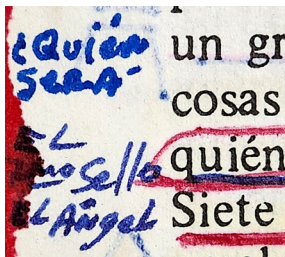 ¿Quién
SERÁ
EL
EL Ángel
un gr
cosas
quién
Siete